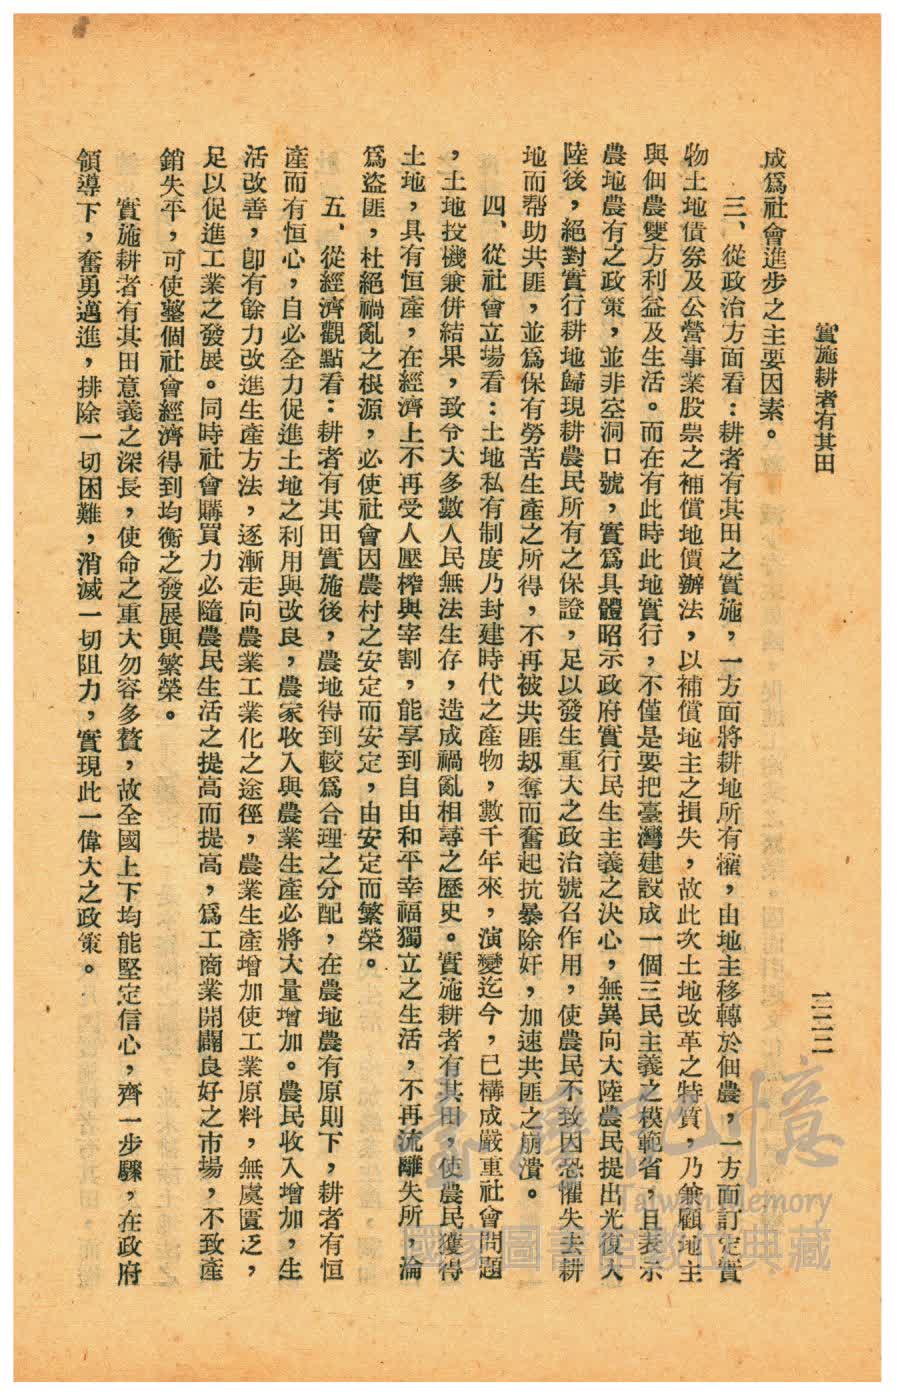 實施耕者有其田
三二二
成爲社會進步之主要因素。
三、從政治方面看：耕者有其田之實施，一方面將耕地所有權，由地主移轉於佃農，一方面訂定實
物土地債券及公營事業股票之補償地價辦法，以補償地主之損失，故此次土地改革之特質，乃兼顧地主
與佃農雙方利益及生活。而在有此時此地實行，不僅是要把臺灣建設成一個三民主義之模範省，且表示
農地農有之政策，並非空洞口號，實爲具體昭示政府實行民生主義之決心，無異向大陸農民提出光復大
陸後，絕對實行耕地歸現耕農民所有之保證，足以發生重大之政治號召作用，使農民不致因恐懼失去耕
地而帮助共匪，並爲保有勞苦生產之所得，不再被共匪刼奪而奮起抗暴除奸，加速共匪之崩潰。
四、從社會立場看：土地私有制度乃封建時代之產物，數千年來，演變迄今，已構成嚴重社會問題
，土地投機兼併結果，致令大多數人民無法生存，造成禍亂相尋之歷史。實施耕者有其田，使農民獲得
土地，具有恒產，在經濟上不再受人壓榨與宰割，能享到自由和平幸福獨立之生活，不再流離失所，淪
爲盜匪，杜絕禍亂之根源，必使社會因農村之安定而安定，由安定而繁榮。
五、從經濟觀點看：耕者有其田實施後，農地得到較爲合理之分配，在農地農有原則下，耕者有恒
產而有恒心，自必全力促進土地之利用與改良，農家收入與農業生產必將大量增加。農民收入增加，生
活改善，卽有餘力改進生產方法，逐漸走向農業工業化之途徑，農業生產增加使工業原料，無虞匱乏，
足以促進工業之發展。同時社會購買力必隨農民生活之提高而提高，爲工商業開闢良好之市場，不致產
銷失平，可使整個社會經濟得到均衡之發展與繁榮。
實施耕者有其田意義之深長，使命之重大勿容多贅，故全國上下均能堅定信心，齊一步驟，在政府
領導下，奮勇邁進，排除一切困難，消滅一切阻力，實現此一偉大之政策。
臺灣記憶
Taiwan Memory
國家圖書館數位典藏